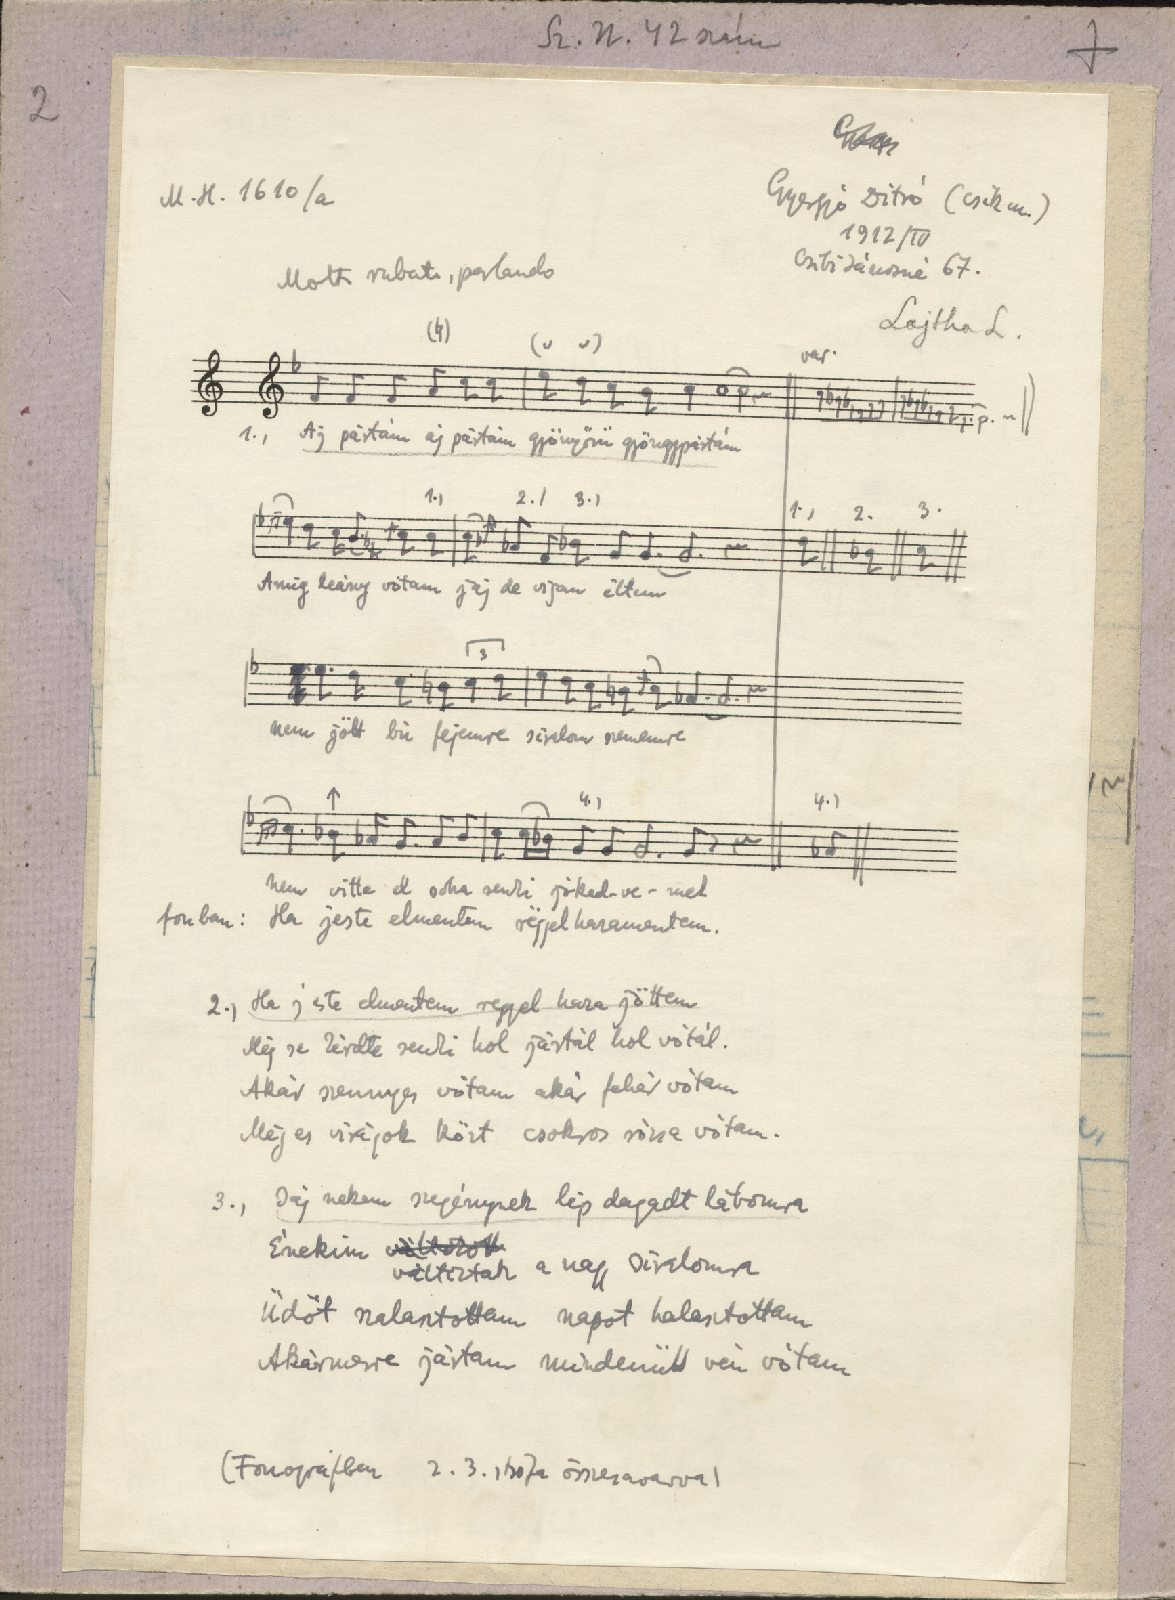 Sz. N. 42 szám
2
M. H. 1610/a
Gyergyó Ditró (Csík m.)
1912/IV
Csibi Jánosné 67.
Lajtha L.
Molto rubato, parlando
(♮)
var.
1., Áj pártám áj pártám gyönyörü gyöngypártám
1., 2., 3.,
1., 2. 3.
Amíg leány vótam jáj de vígan éltem
3
nem jött bú fejemre siralom szememre
4.,
4.,
nem vitte el soha senki jóked-ve-met
fonban: Ha jeste elmentem röggel hazamentem.
2., Ha j este elmentem reggel haza jöttem
Méj se kérdte senki hol jártál hol vótál.
Akár szennyes vótam akár fehér vótam
Méj es virágok közt csokros rózsa vótam.
3., Jáj nekem szegénynek lép dagadt lábomra
Énekim változott
váltiztak a nagy siralomra
Üdőt szalasztottam napot halasztottam
Akármerre jártam mindenütt vén vótam
(Fonográfban 2. 3. össezavarva)